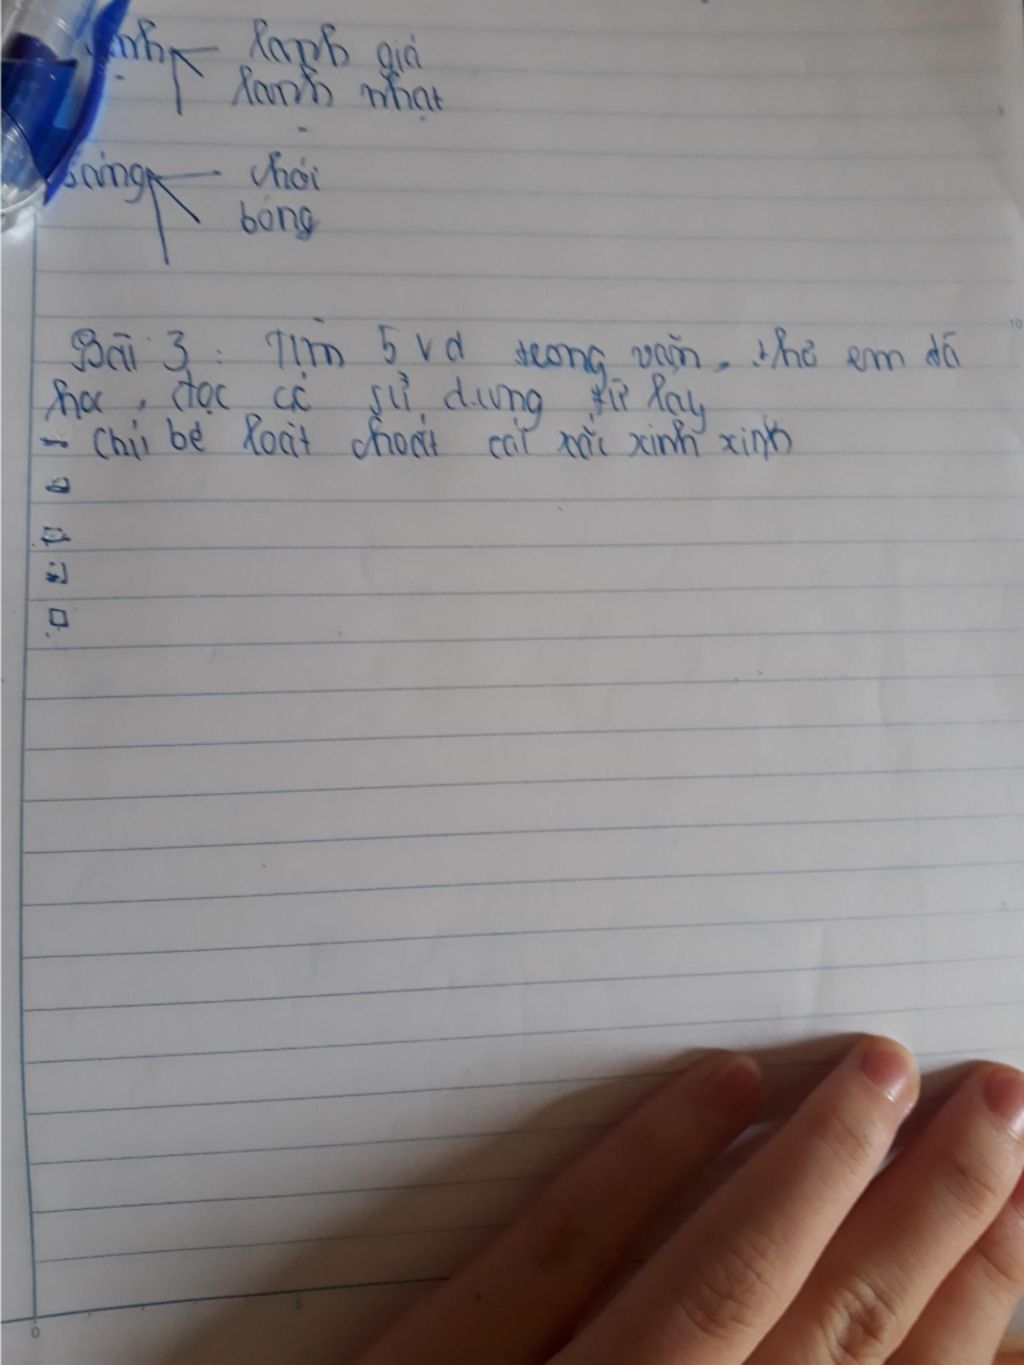 lạnh giá
lạnh nhạt
sáng chói
bóng
Bài 3: Tìm 5 vd trong văn, thơ em đã
học, đọc có sử dụng từ láy
- Chú bé loắt choắt cái xắc xinh xinh
10
5
0